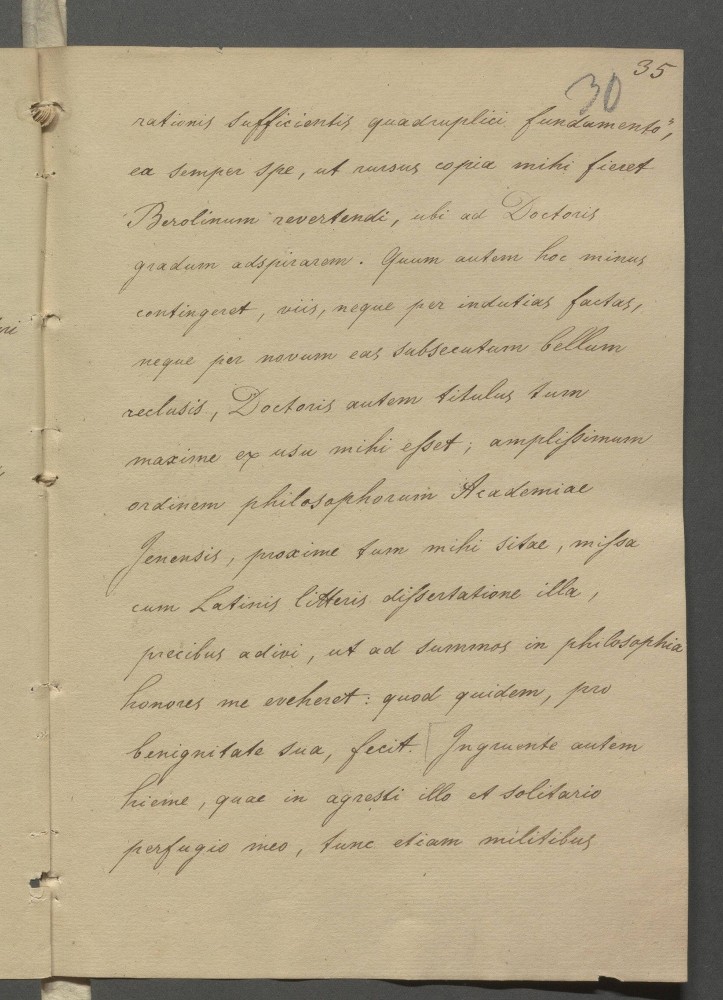 35
30
rationis sufficientis quadruplici fundamento",
ea semper spe, ut rursus copia mihi fieret
Berolinum revertendi, ubi ad Doctoris
gradum adspirarem. Quum autem hoc minus
contingeret, viis, neque per indutias factas,
neque per novum eas subsecutum bellum
reclusis, Doctoris autem titulus tum
maxime ex usu mihi eſset; ampliſsimum
ordinem philosophorum Academiae
Jenensis, proxime tum mihi sitae, miſsa
cum Latinis litteris diſsertatione illa,
precibus adivi, ut ad summos in philosophia
honores me eveheret: quod quidem, pro
benignitate sua, fecit. [Ingruente autem
hieme, quae in agresti illo et solitario
perfugio meo, tunc etiam militibus